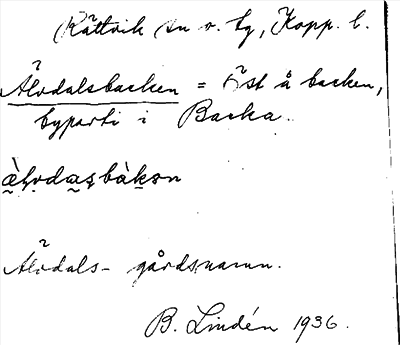 Rättvik sn o. by, Kopp. l.
Älvdalsbacken = Öst å backen,
byparti i Backa.
Älvdals- gårdsnamn.
B. Lindén 1936.